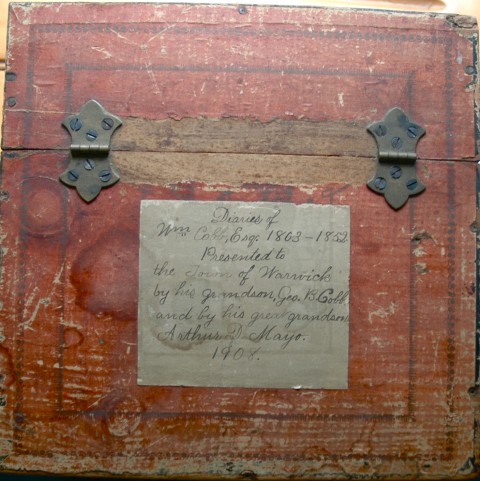 Diaries of
Wm Cobb, Esq. 1863-1852
Presented to
the Town of Warwick
by his grandson, Geo. B. Cobb
and by his great grandson
Arthur D. Mayo.
1908.